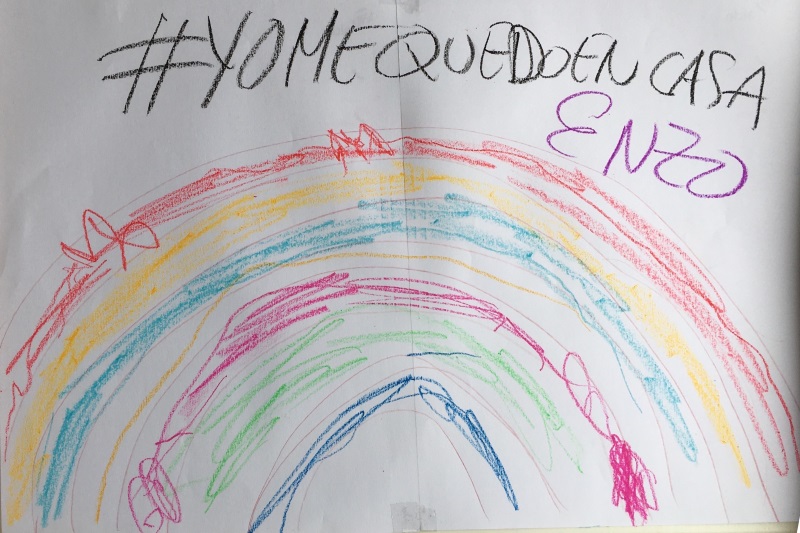 #YOMEQUEDOENCASA
ENZO